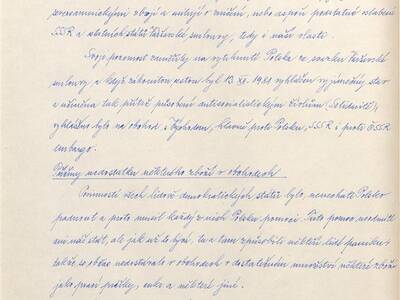 severoamerickými zbrojí a usilují o zničení, nebo aspoň podstatné oslabení
SSSR a ostatních států Varšavské smlouvy, tedy i naší vlasti.
Svoje pozornost zaměřily na vytrhnutí Polska ze svazku Varšavské
smlouvy a když zákonitou cestou byl 13. XII. 1981 vyhlášen vyjímečný stav
a učiněna tak přítrž působení antisocialistickým živlům (Solidarita),
vyhlášeno bylo na obchod s Východem, hlavně proti Polsku, SSSR i proti ČSSR
embargo.
Příčiny nedostatku některého zboží v obchodech
Povinností všech lidově demokratických států bylo, nenechat Polsko
padnout a proto musel každý z nich Polsku pomoci. Tuto pomoc uskutečnil
i náš stát, ale jak už to bývá, tu a tam způsobili někteří lidé paniku,
takže se občas nedostávalo v obchodech v dostatečném množství některé zboží
jako prací prášky, cukr a některé jiné.